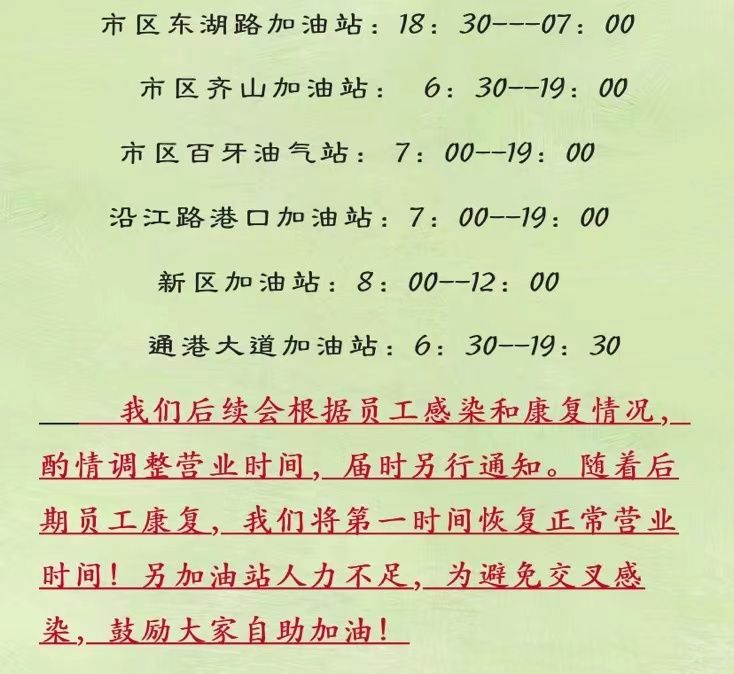 市区东湖路加油站：18：30---07：00
市区齐山加油站： 6：30--19：00
市区百牙油气站：7：00--19：00
沿江路港口加油站：7：00--19：00
新区加油站：8：00--12：00
通港大道加油站：6：30--19：30
我们后续会根据员工感染和康复情况，
酌情调整营业时间，届时另行通知。随着后
期员工康复，我们将第一时间恢复正常营业
时间！另加油站人力不足，为避免交叉感
染，鼓励大家自助加油！